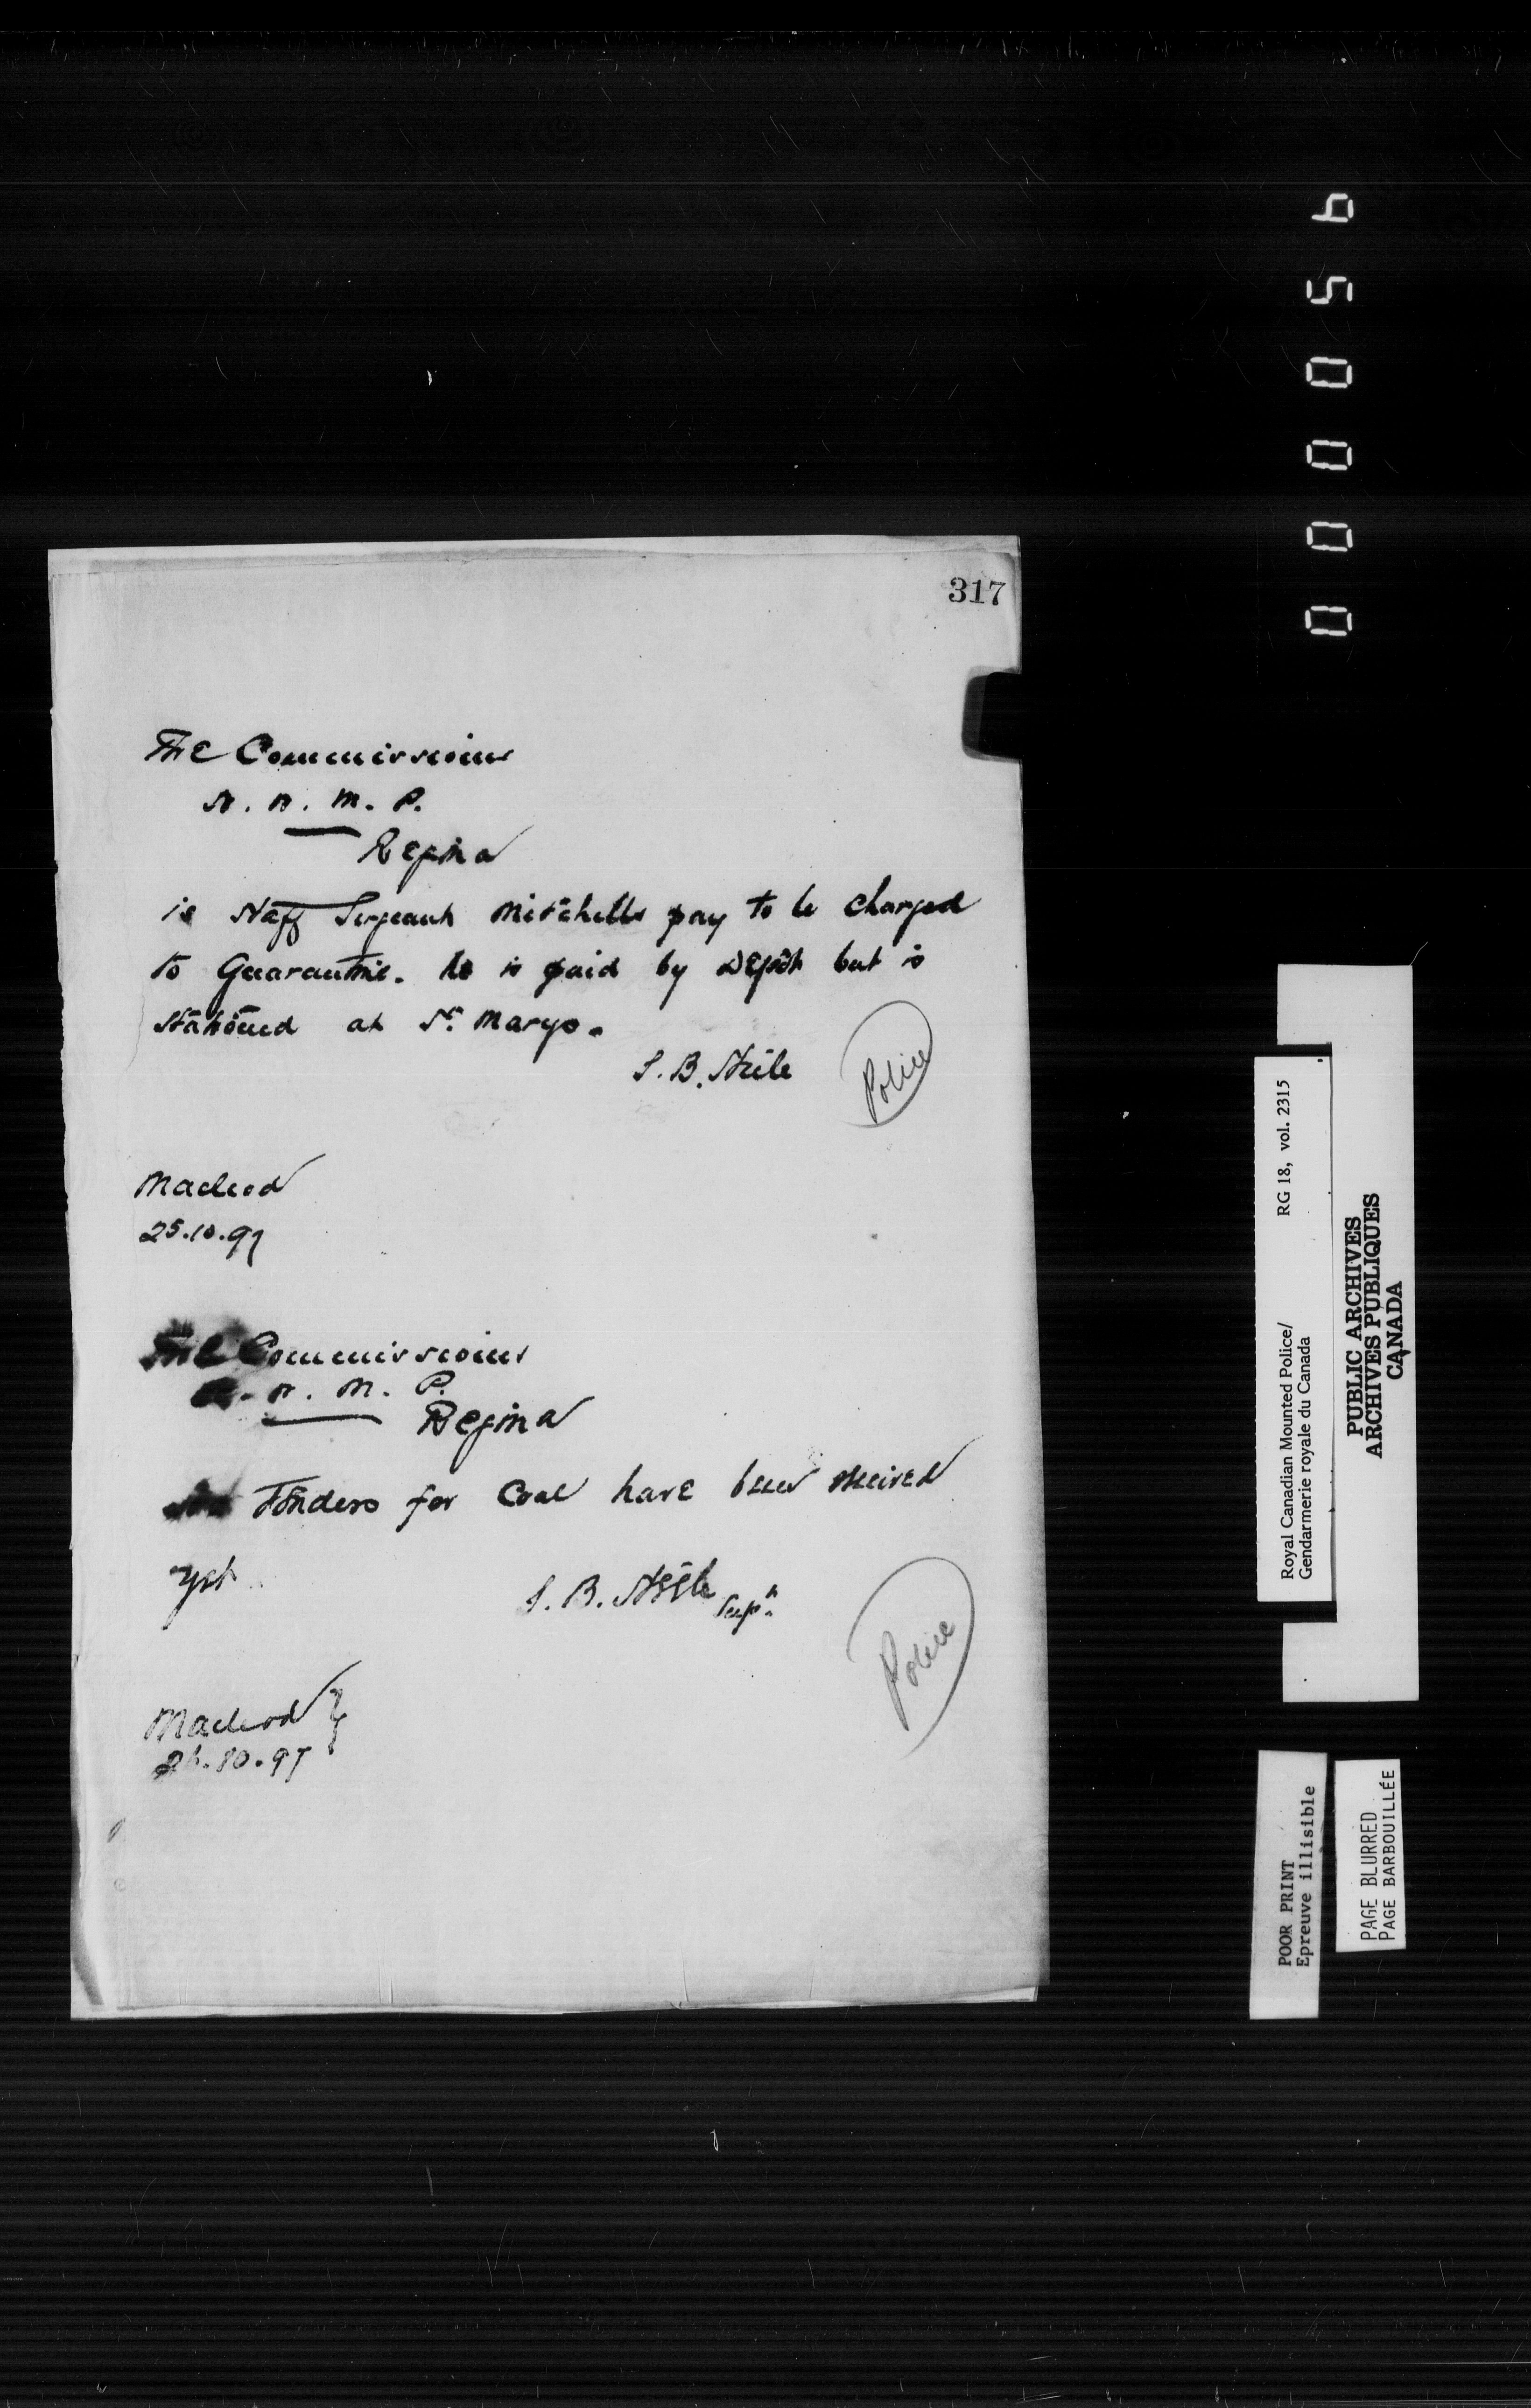 317
The Commissioner
N. W. M. P.
Regina
is Staff Sergeant Mitchells pay to be charged
to Quarantine. he is paid by Depôt but is
stationed at St. Marys.
S. B. Steele
Police
Macleod
25.10.97
The Commissioner
N. W. M. P.
Regina
Tenders for Coal have been received
yet
S. B. Steele Supt.
Police
Macleod
26.10.97
000056
Royal Canadian Mounted Police/ RG 18, vol. 2315
Gendarmerie royale du Canada
PUBLIC ARCHIVES
ARCHIVES PUBLIQUES
CANADA
POOR PRINT
Epreuve illisible
PAGE BLURRED
PAGE BARBOUILLÉE